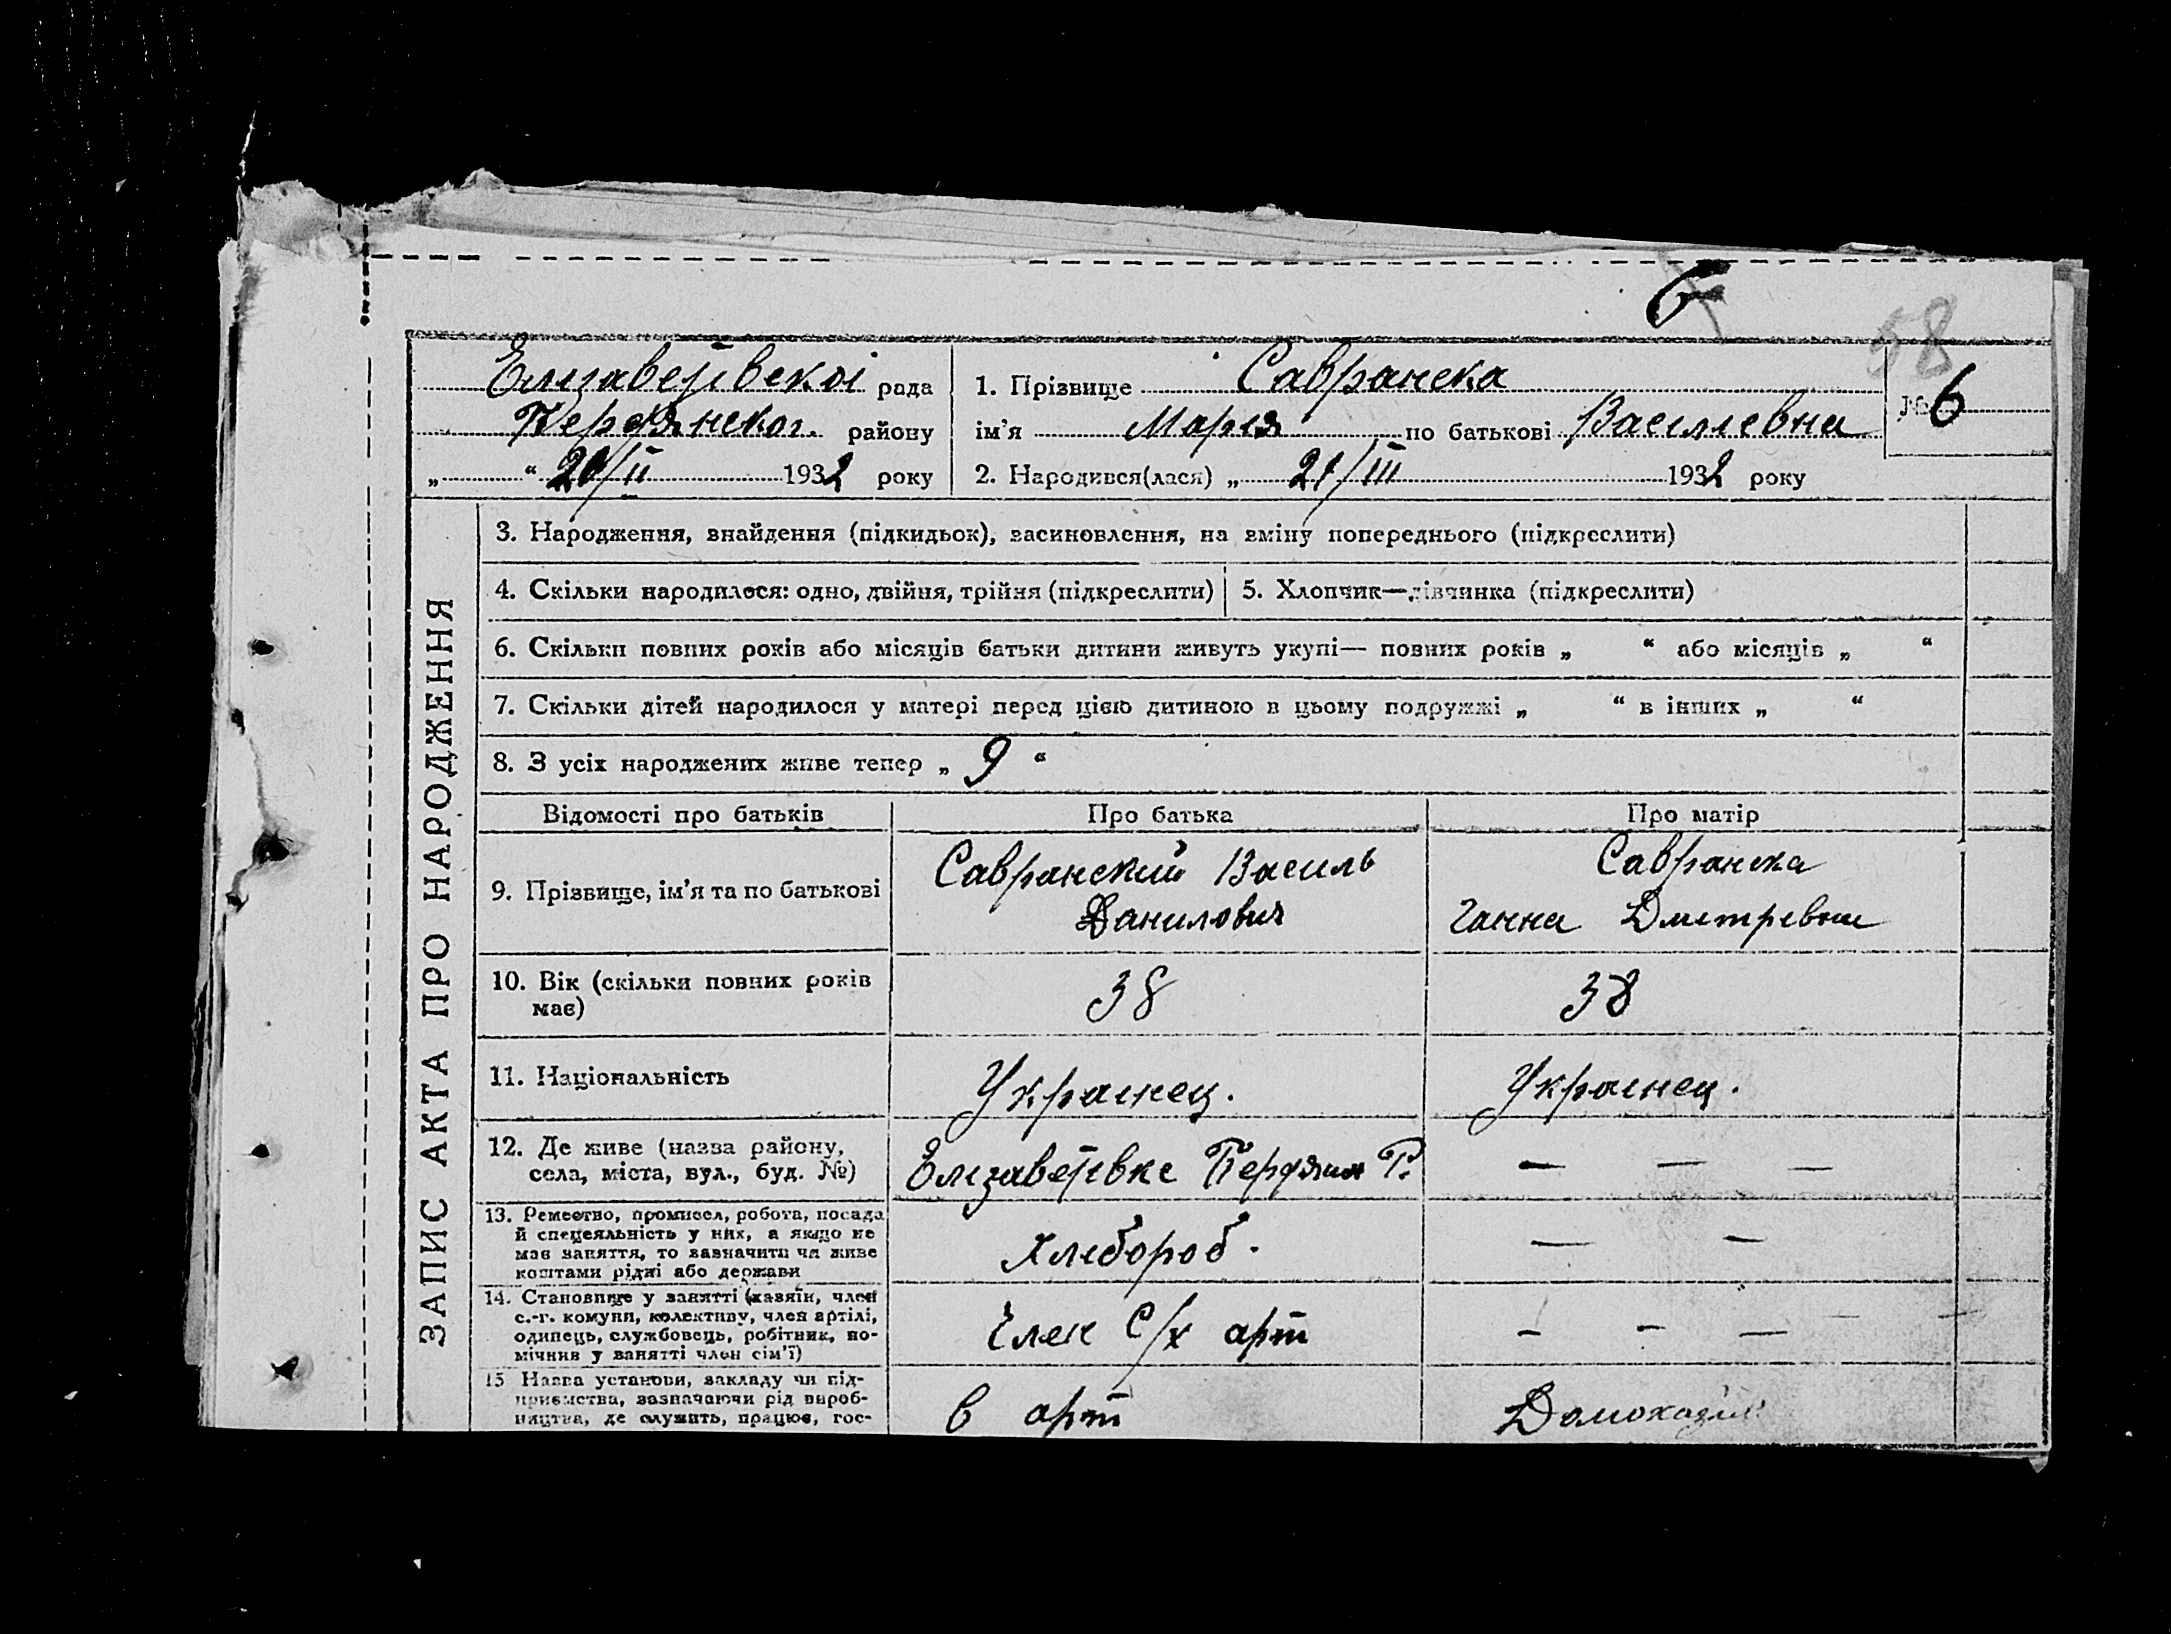 6
58
Елізаветівскоі рада
1. Прізвище Савранска
№ 6
Бердянског. району
ім'я Марія по батькові Василевна
„ “ 20/II 1932 року
2. Народився(лася) „ 21/III 1932 року
ЗАПИС АКТА ПРО НАРОДЖЕННЯ
3. Народження, знайдення (підкидьок), засиновлення, на зміну попереднього (підкреслити)
4. Скільки народилося: одно, двійня, трійня (підкреслити)
5. Хлопчик—дівчинка (підкреслити)
6. Скільки повних років або місяців батьки дитини живуть укупі— повних років „ “ або місяців „ “
7. Скільки дітей народилося у матері перед цією дитиною в цьому подружжі „ “ в інших „ “
8. З усіх народжених живе тепер „ 9 “
Відомості про батьків
Про батька
Про матір
9. Прізвище, ім'я та по батькові
Савранский Василь
Данилович
Савранска
Ганна Дмитревна
10. Вік (скільки повних років
має)
38
38
11. Національність
Украинец.
Украинец.
12. Де живе (назва району,
села, міста, вул., буд. №)
Елізаветівке Бердянск Р.
— — —
13. Ремество, промисел, робота, посада
й спецеяльність у них, а якщо не
має заняття, то зазначити чи живе
коштами рідні або держави
Хлебороб.
— —
14. Становище у занятті (хазяїн, член
с.-г. комуни, колективу, член артілі,
одинець, службовець, робітник, по-
мічник у занятті член сім'ї)
Член С/х арт
— — — — —
15 Назва установи, закладу чи під-
приємства, зазначаючи рід вироб-
ництва, де служить, працює, гос-
в арт